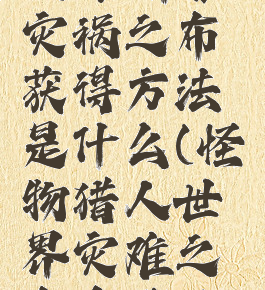 灾祸之布
获得方法
是什么(怪
物猎人世
界灾难之